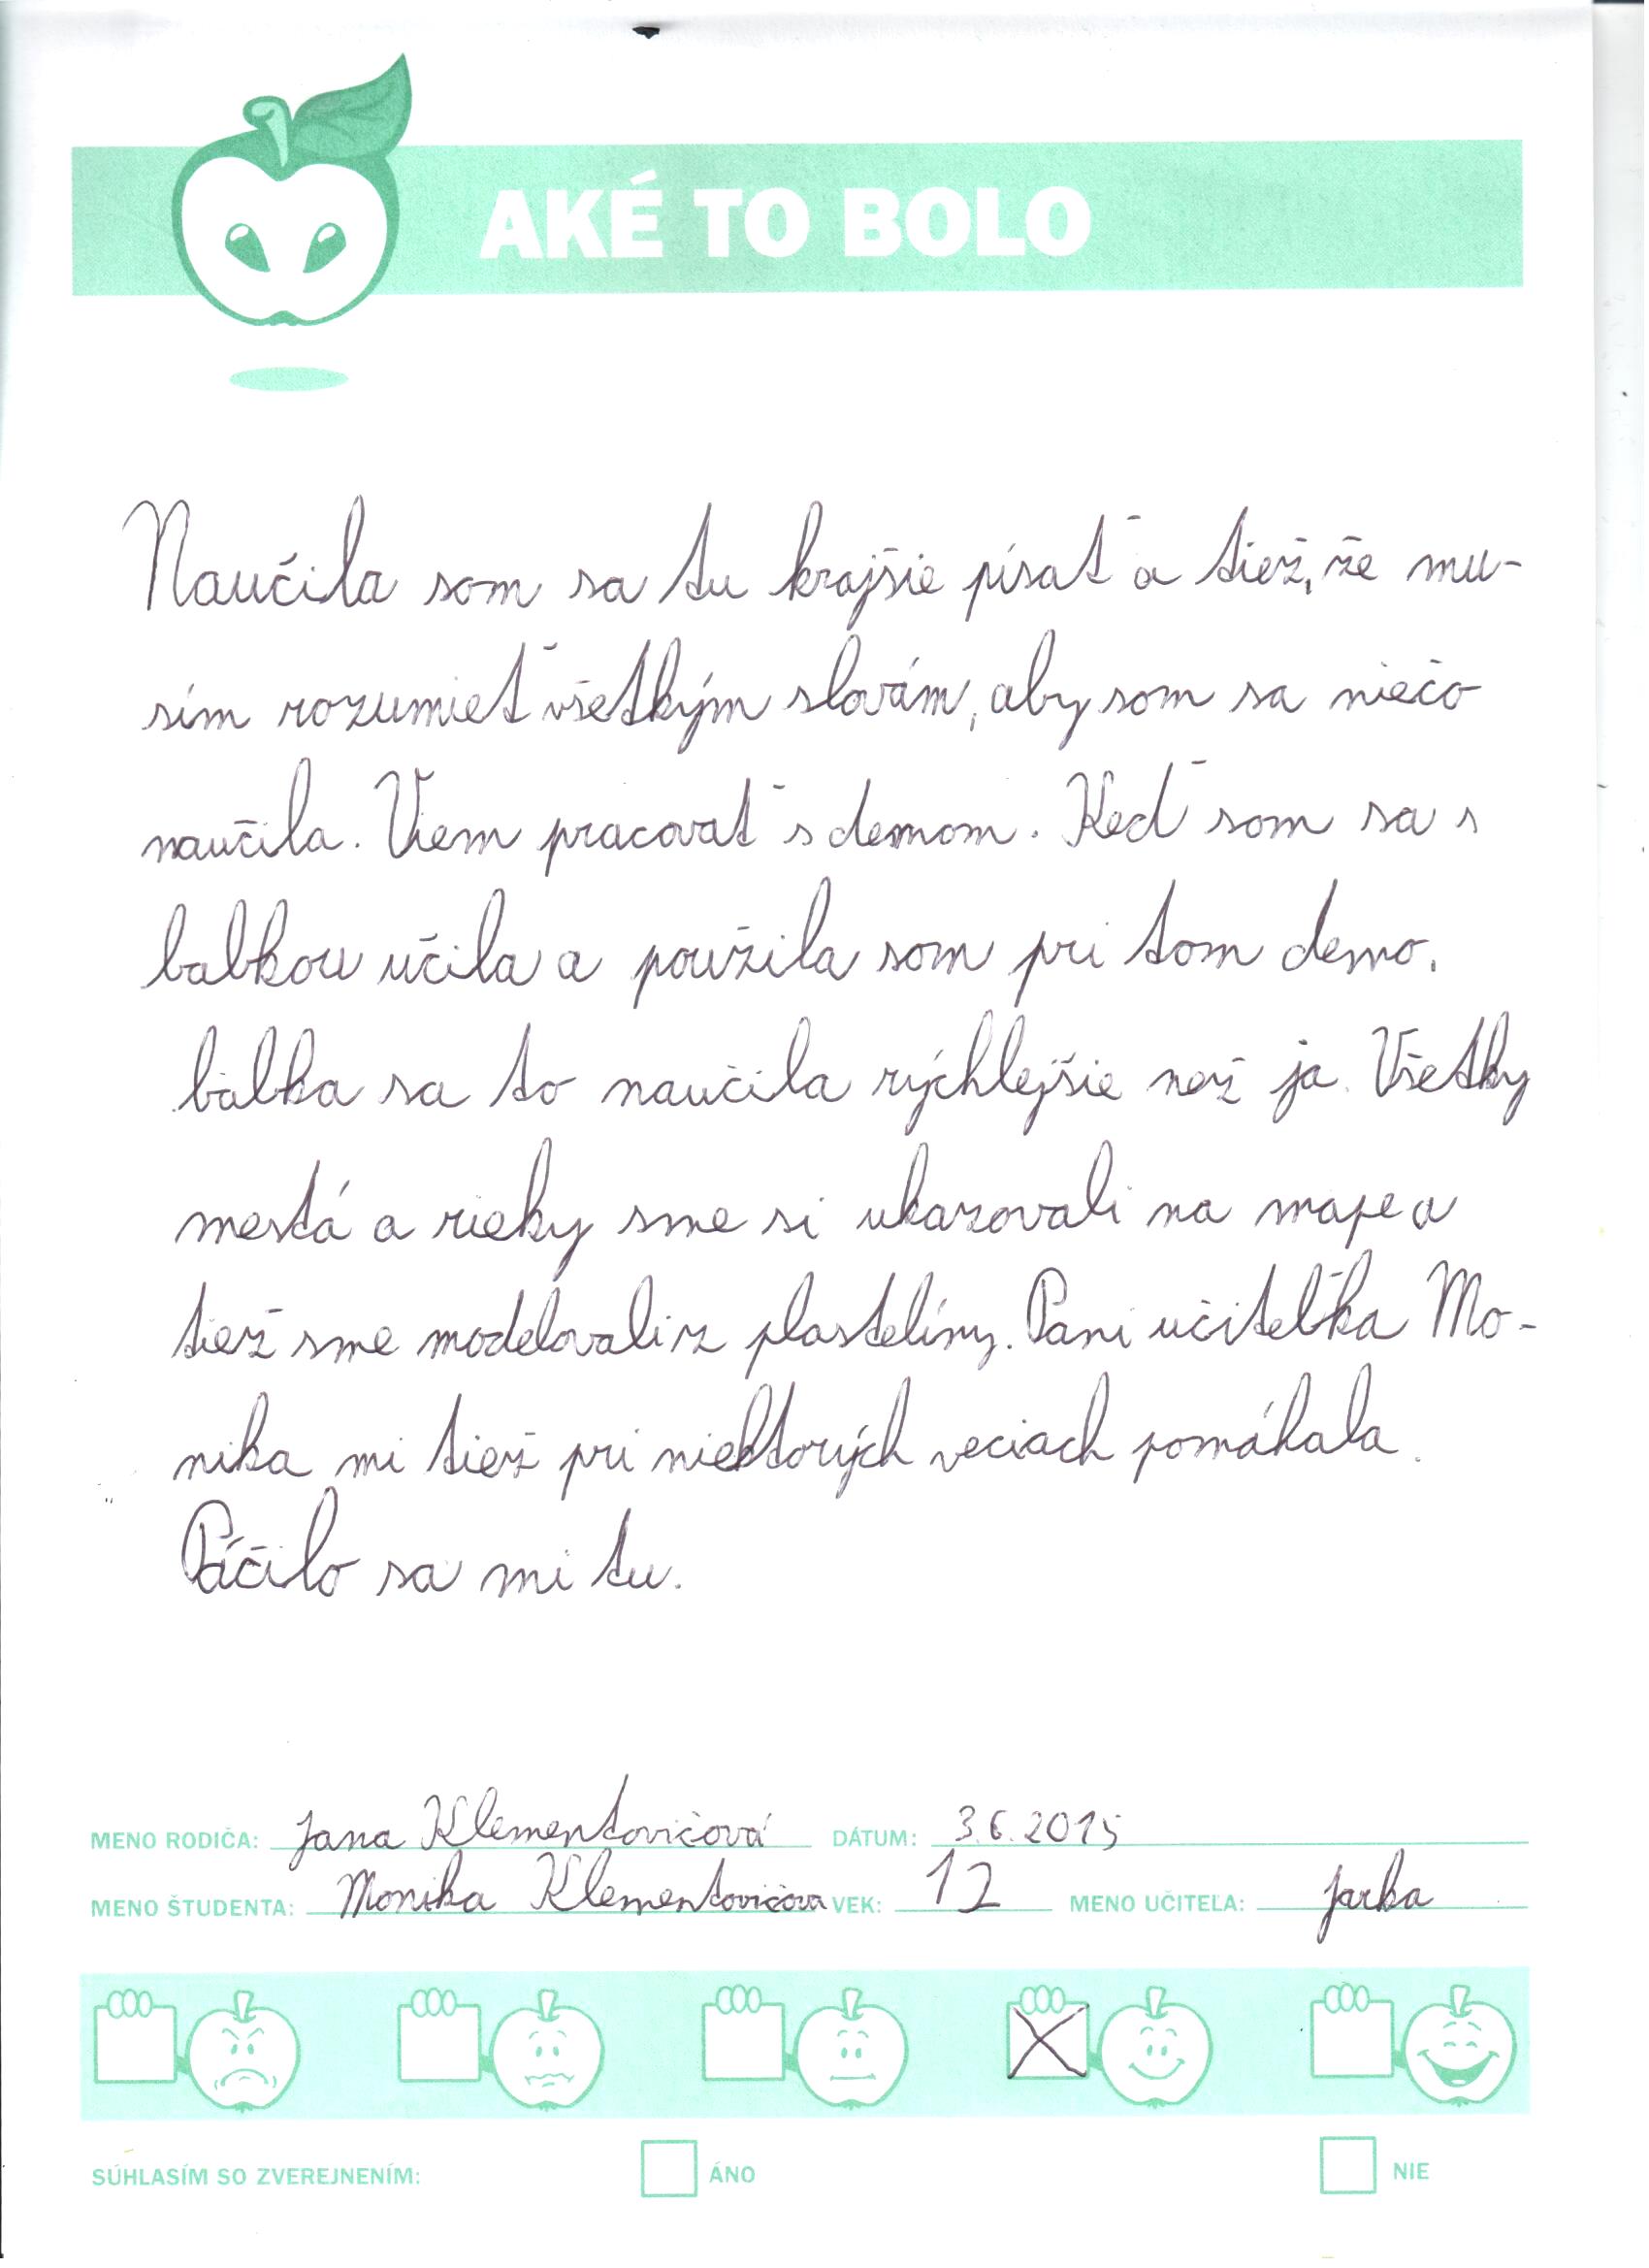 AKÉ TO BOLO
Naučila som sa tu krajšie písať a tiež, že mu-
sím rozumieť všetkým slovám, aby som sa niečo
naučila. Viem pracovať s demom. Keď som sa s
babkou učila a použila som pri tom demo.
babka sa to naučila rýchlejšie než ja. Všetky
mestá a rieky sme si ukazovali na mape a
tiež sme modelovali z plastelíny. Pani učiteľka Mo-
nika mi tiež pri niektorých veciach pomáhala.
Páčilo sa mi tu.
MENO RODIČA: Jana Klementovičová DÁTUM: 3.6.2015
MENO ŠTUDENTA: Monika Klementovičova VEK: 12 MENO UČITEĽA: Jarka
SÚHLASÍM SO ZVEREJNENÍM: ÁNO NIE